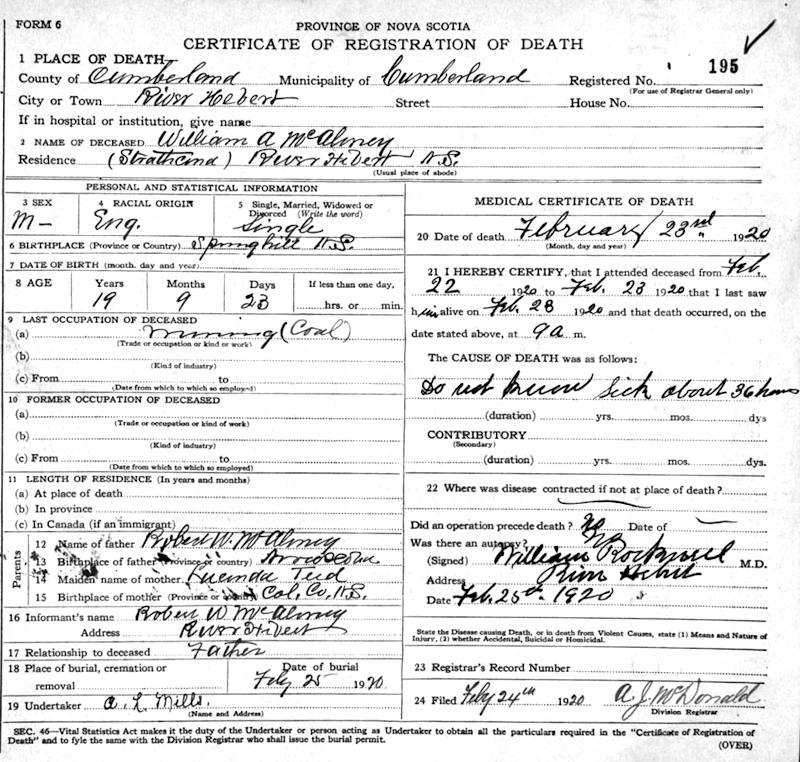 FORM 6
PROVINCE OF NOVA SCOTIA
CERTIFICATE OF REGISTRATION OF DEATH
195
1 PLACE OF DEATH—
County of Cumberland Municipality of Cumberland Registered No.
(For use of Registrar General only)
City or Town River Hebert Street House No.
If in hospital or institution, give name
2 NAME OF DECEASED William A McAlmey
Residence (Strathcona) River Hibert N.S.
(Usual place of abode)
PERSONAL AND STATISTICAL INFORMATION
3 SEX 4 RACIAL ORIGIN 5 Single, Married, Widowed or Divorced (Write the word)
M— Eng. Single
6 BIRTHPLACE (Province or Country) Springhill N.S.
7 DATE OF BIRTH (month, day and year)
8 AGE Years Months Days If less than one day,
19 9 23 hrs. or min.
9 LAST OCCUPATION OF DECEASED
(a) Mining (Coal)
(Trade or occupation or kind or work)
(b)
(Kind of industry)
(c) From to
(Date from which to which so employed)
10 FORMER OCCUPATION OF DECEASED
(a)
(Trade or occupation or kind of work)
(b)
(Kind of industry)
(c) From to
(Date from which to which so employed)
11 LENGTH OF RESIDENCE (In years and months)
(a) At place of death
(b) In province
(c) In Canada (if an immigrant)
Parents
12 Name of father Robert W. McAlmey
13 Birthplace of father (Province or country)
14 Maiden name of mother Lucinda
15 Birthplace of mother (Province or country) Col. Co. N.S.
16 Informant's name Robert W McAlmey
Address River Hibert
17 Relationship to deceased Father
18 Place of burial, cremation or removal Date of burial
Feby 25 1920
19 Undertaker A. L. Mills
(Name and Address)
MEDICAL CERTIFICATE OF DEATH
20 Date of death February 23rd 1920
(Month, day and year)
21 I HEREBY CERTIFY, that I attended deceased from Feb.
22 1920 to Feb. 23 1920 that I last saw
him alive on Feb 23 1920 and that death occurred, on the
date stated above, at 9 a m.
The CAUSE OF DEATH was as follows:
Do not know Sick about 36 hours
(duration) yrs. mos. dys
CONTRIBUTORY
(Secondary)
(duration) yrs. mos. dys.
22 Where was disease contracted if not at place of death?
Did an operation precede death? No Date of —
Was there an autopsy?
(Signed) William Rockwell M.D.
Address River Hebert
Date Feb. 25th 1920
State the Disease causing Death, or in death from Violent Causes, state (1) Means and Nature of
Injury, (2) whether Accidental, Suicidal or Homicidal.
23 Registrar's Record Number
24 Filed Feby 24th 1920 A. J. McDonald
Division Registrar
SEC. 46—Vital Statistics Act makes it the duty of the Undertaker or person acting as Undertaker to obtain all the particulars required in the "Certificate of Registration of
Death" and to fyle the same with the Division Registrar who shall issue the burial permit.
(OVER)